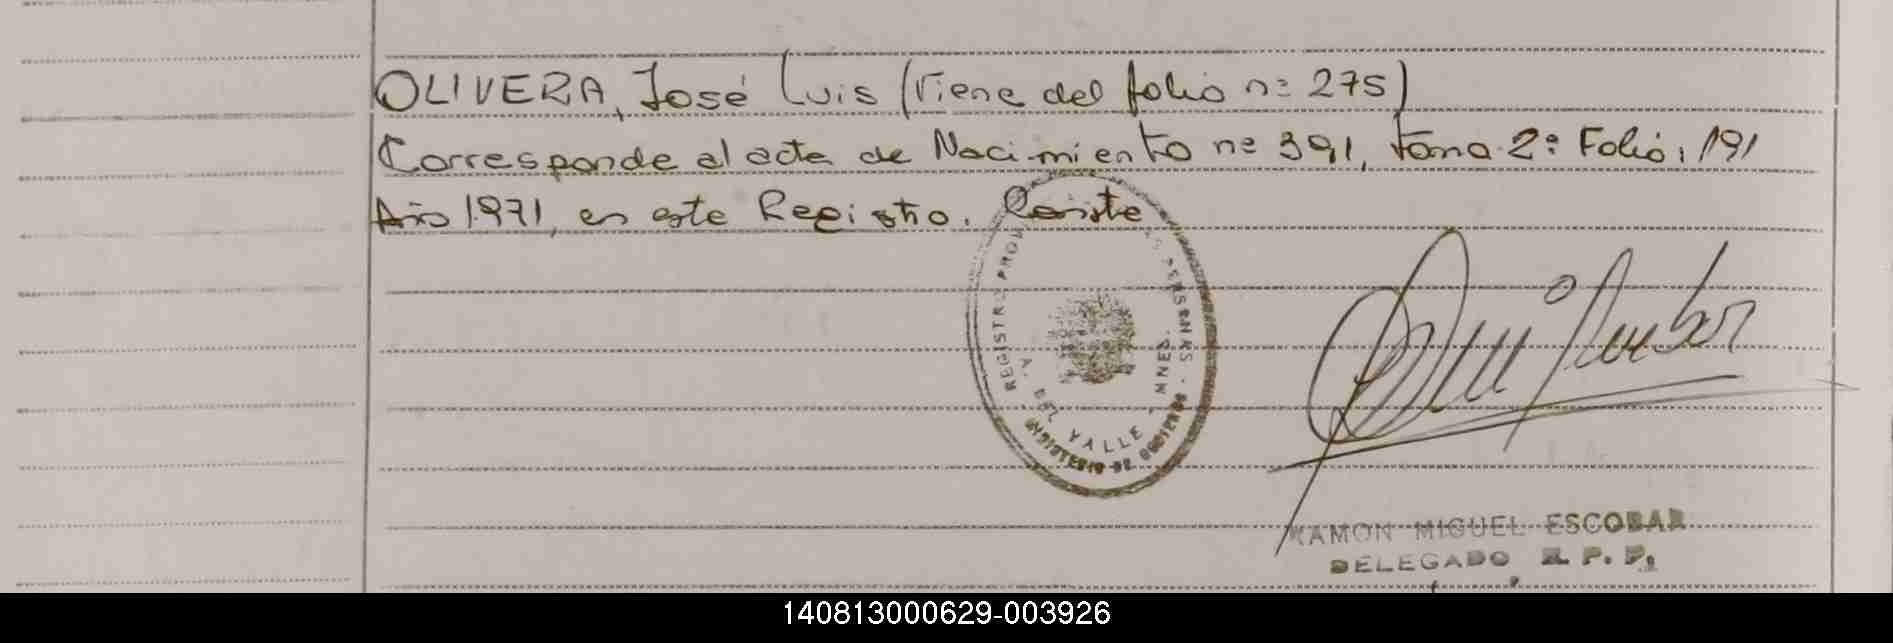 OLIVERA, José Luis (Viene del folio nº 275)
Corresponde al acta de Nacimiento nº 391, tomo 2º Folio: 191
Año 1.971, en este Registro. Conste
REGISTRO PROV. DE LAS PERSONAS
V. DEL VALLE - MNES.
MINISTERIO DE GOBIERNO
RAMON MIGUEL ESCOBAR
DELEGADO R. P. P.
140813000629-003926